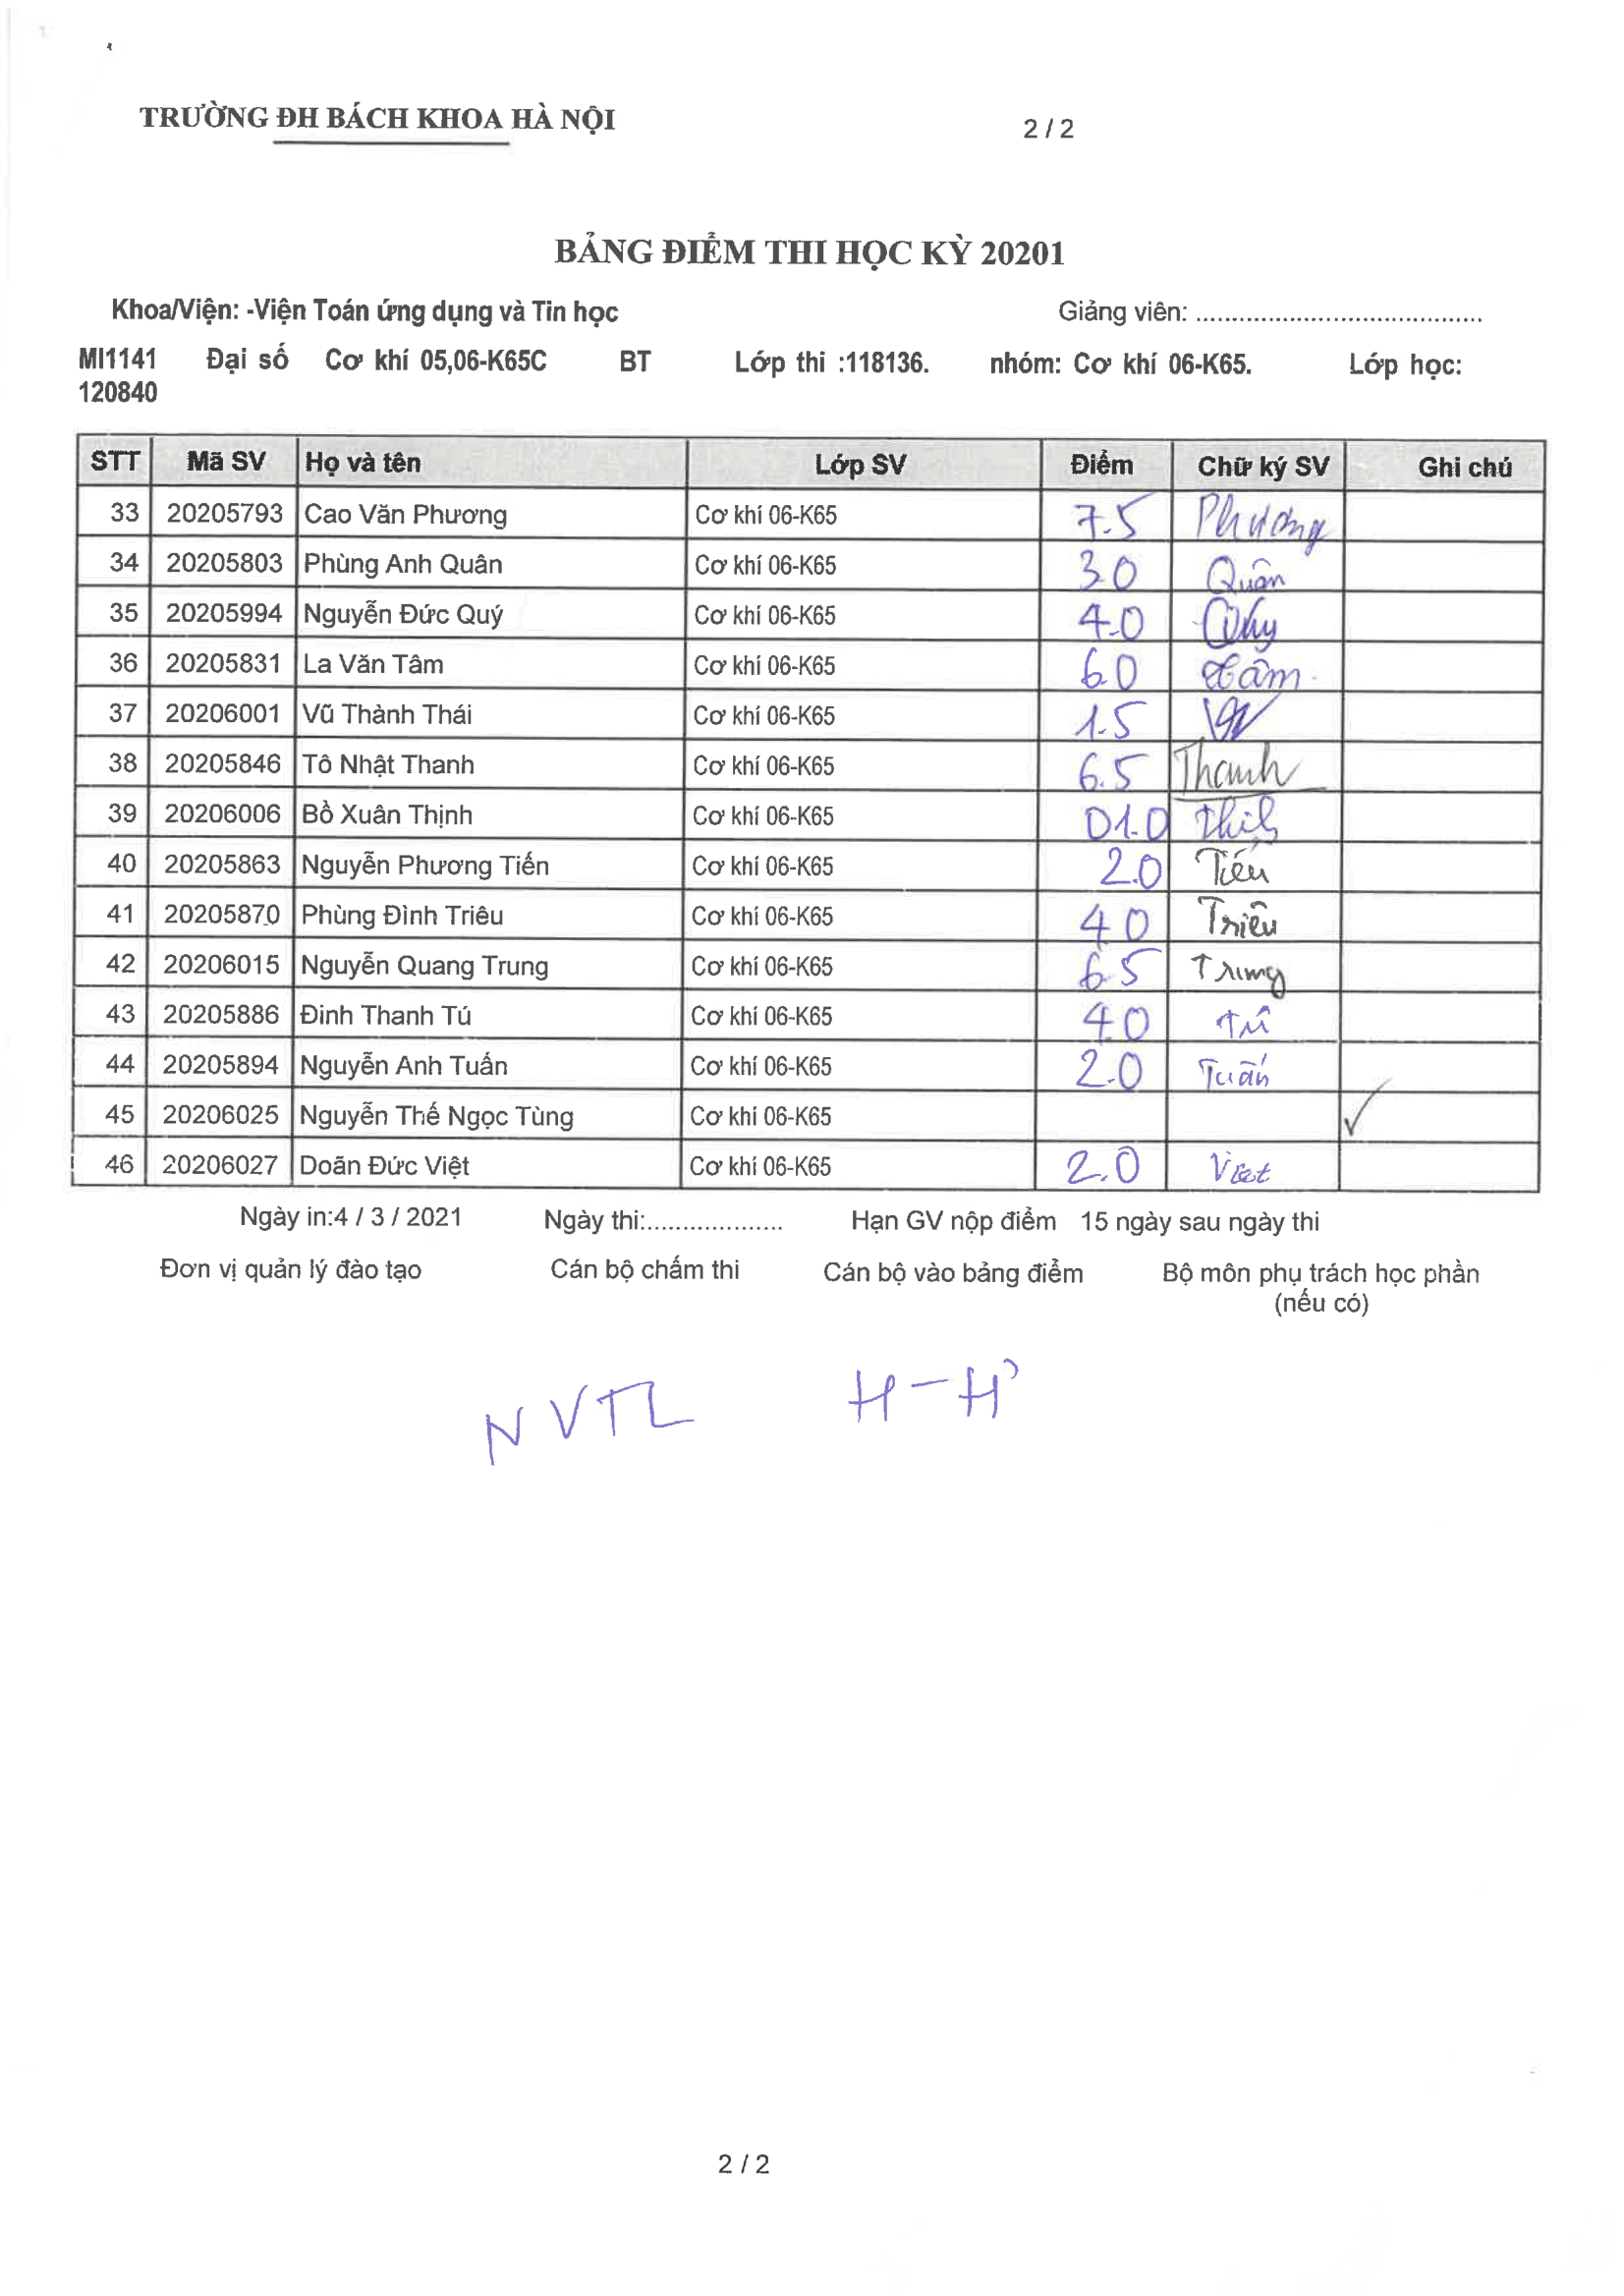 TRƯỜNG ĐH BÁCH KHOA HÀ NỘI
2 / 2
BẢNG ĐIỂM THI HỌC KỲ 20201
Khoa/Viện: -Viện Toán ứng dụng và Tin học Giảng viên: ........................................
MI1141 Đại số Cơ khí 05,06-K65C BT Lớp thi :118136. nhóm: Cơ khí 06-K65. Lớp học:
120840
STT Mã SV Họ và tên Lớp SV Điểm Chữ ký SV Ghi chú
33 20205793 Cao Văn Phương Cơ khí 06-K65 7.5 Phương
34 20205803 Phùng Anh Quân Cơ khí 06-K65 3.0 Quân
35 20205994 Nguyễn Đức Quý Cơ khí 06-K65 4.0 Quý
36 20205831 La Văn Tâm Cơ khí 06-K65 6.0 Tâm
37 20206001 Vũ Thành Thái Cơ khí 06-K65 1.5
38 20205846 Tô Nhật Thanh Cơ khí 06-K65 6.5 Thanh
39 20206006 Bồ Xuân Thịnh Cơ khí 06-K65 01.0
40 20205863 Nguyễn Phương Tiến Cơ khí 06-K65 2.0 Tiến
41 20205870 Phùng Đình Triêu Cơ khí 06-K65 4.0 Triêu
42 20206015 Nguyễn Quang Trung Cơ khí 06-K65 6.5 Trung
43 20205886 Đinh Thanh Tú Cơ khí 06-K65 4.0 Tú
44 20205894 Nguyễn Anh Tuấn Cơ khí 06-K65 2.0 Tuấn
45 20206025 Nguyễn Thế Ngọc Tùng Cơ khí 06-K65 ✓
46 20206027 Doãn Đức Việt Cơ khí 06-K65 2.0 Việt
Ngày in:4 / 3 / 2021 Ngày thi:................... Hạn GV nộp điểm 15 ngày sau ngày thi
Đơn vị quản lý đào tạo Cán bộ chấm thi Cán bộ vào bảng điểm Bộ môn phụ trách học phần
(nếu có)
NVTL
2 / 2